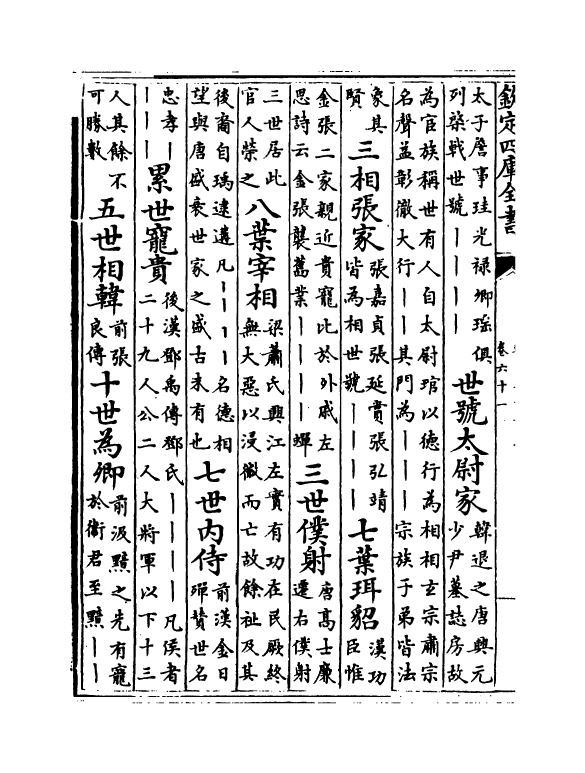 欽定四庫全書
卷六十一
太子詹事珪光禄卿瑤俱
列棨戟世號｜｜｜｜
世號太尉家
韓退之唐興元
少尹墓誌房故
為官族稱世有人自太尉琯以德行為相相玄宗肅宗
名聲益彰徹大行｜｜其門為｜｜｜｜宗族子弟皆法
象其
賢
三相張家
張嘉貞張延賞張弘靖
皆為相世號｜｜｜｜
七葉珥貂
漢功
臣惟
金張二家親近貴寵比於外戚左
思詩云金張襲舊業｜｜｜｜蟬
三世僕射
唐髙士廉
遷右僕射
三世居此
官人榮之
八葉宰相
梁蕭氏興江左實有功在民厥終
無大惡以浸微而亡故餘祉及其
後裔自瑀逮遘凡｜｜｜｜名德相
望與唐盛衰世家之盛古未有也
七世内侍
前漢金日
磾贊世名
忠孝｜
｜｜｜
累世寵貴
後漢鄧禹傳鄧氏｜｜｜｜凡侯者
二十九人公二人大將軍以下十三
人其餘不
可勝數
五世相韓
前張
良傳
十世為卿
前汲黯之先有寵
於衛君至黯｜｜